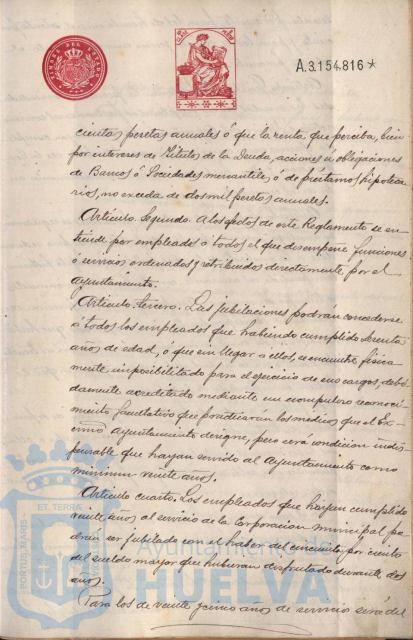 TIMBRE DEL ESTADO
A.3.154.816*
cientas pesetas anuales ó que la renta que perciba, bien
por intereses de Titulos de la Deuda, acciones u obligaciones
de Bancos ó Sociedades mercantiles, ó de préstamos hipoteca-
rios, no exceda de dos mil pesetas anuales.
Articulo segundo. A los efectos de este Reglamento se en-
tiende por empleado a todo el que desempeñe funciones
ó servicios ordenados y retribuidos directamente por el
Ayuntamiento.
Articulo tercero. Las jubilaciones podrán concederse
a todos los empleados que habiendo cumplido sesenta
años de edad, ó que sin llegar a ellos, se encuentre fisica-
mente imposibilitado para el ejercicio de sus cargos, debi-
damente acreditado mediante un escrupuloso reconoci-
miento facultativo que practicarán los medicos que el Ex-
cmo Ayuntamiento designe, pero será condicion indis-
pensable que hayan servido al Ayuntamiento como
minimun veinte años.
Articulo cuarto. Los empleados que hayan cumplido
veinte años al servicio de la Corporacion municipal po-
drán ser jubilados con el haber del cincuenta por ciento
del sueldo mayor que hubieran disfrutado durante dos
años.
Para los de veinte y cinco años de servicio será del
PORTUS MARIS
ET TERRA
Ayuntamiento de
HUELVA